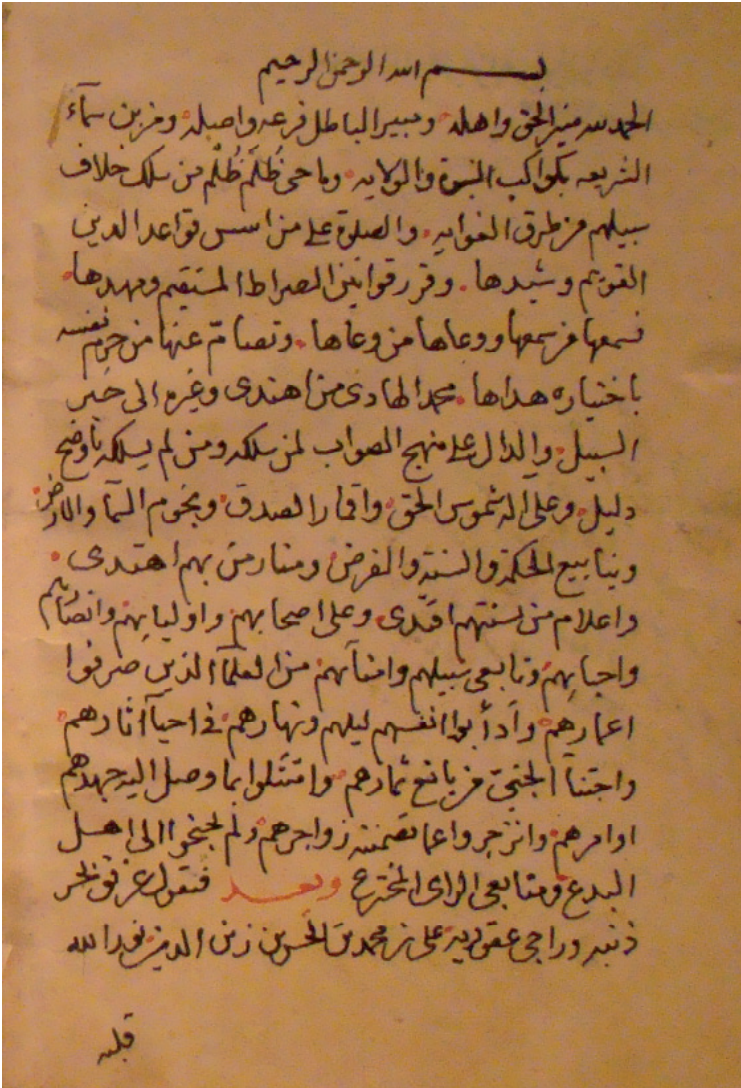 بسم الله الرحمن الرحيم
الحمد لله منير الحق واهله ومبير الباطل فرعه واصله ومزين سمآء
الشريعه بكواكب النبوة والولايه وماحى ظُلَم ظُلْم من سلك خلاف
سبيلهم من طرق الغوايه والصلوة على من اسس قواعد الدين
القويم وشيدها وقرر قوانين الصراط المستقيم ومهدها
فسمعها من سمعها ووعاها من وعاها وتصامّ عنها من حرم نفسه
باختياره هداها محمد الهادى من اهتدى وغيره الى خير
السبيل والدال على منهج الصواب لمن سلكه ومن لم يسلكه باوضح
دليل وعلى اله شموس الحق واقمار الصدق ونجوم السما والارض
وينابيع الحكمة والسنة والفرض ومنار من بهم اهتدى
واعلام من بسنتهم اقتدى وعلى اصحابهم واوليايهم وانصائهم
واحبايهم وتابعى سبيلهم وامنآئهم من العلمآ الذين صرفوا
اعمارهم وأدأبوا انفسهم ليلهم ونهارهم فى احيآ اثارهم
واجتنآ الجنىّ من يانع ثمارهم وامتثلوا بما وصل اليه جهدهم
اوامرهم وانزجروا عما تضمنته زواجرهم ولم يجنحوا الى اهل
البدع ومتابعى الراى المخترع وبعد فيقول غريق بحر
ذنبه وراجى عفو ربه على بن محمد بن الحسن بن زين الدين نور الله
قلبه